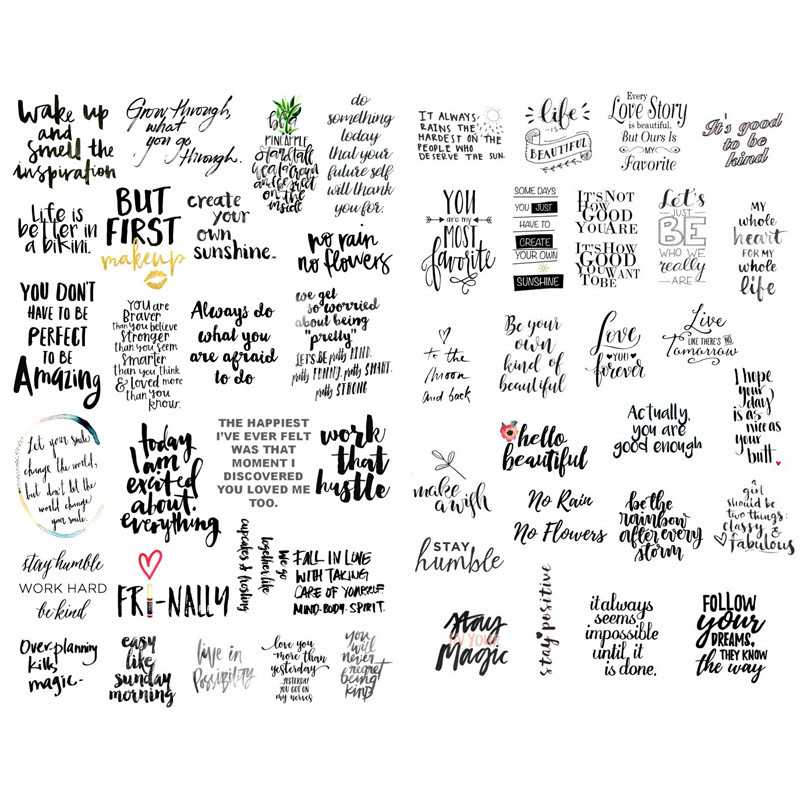 wake up
and
smell the
inspiration
Grow through,
what
you go
through.
be a
PINEAPPLE
stand tall
wear a crown
and be sweet
on the
inside
do
something
today
that your
future self
will thank
you for.
Life is
better in
a bikini.
BUT
FIRST
makeup
create
your
own
sunshine.
no rain
no flowers
YOU DON'T
HAVE TO BE
PERFECT
TO BE
Amazing
YOU are
Braver
than you believe
Stronger
than you seem
Smarter
than you think
& Loved more
than you
know.
Always do
what you
are afraid
to do
we get
so worried
about being
"pretty"
LET'S BE pretty KIND.
pretty FUNNY. pretty SMART.
pretty STRONG
Let your smile
change the world,
but don't let the
world change
your smile.
today
I am
excited
about
everything
THE HAPPIEST
I'VE EVER FELT
WAS THAT
MOMENT I
DISCOVERED
YOU LOVED ME
TOO.
work
that
hustle
stay humble
WORK HARD
be kind
FRI-NALLY
We go
together like
cupcakes & frosting
FALL IN LOVE
WITH TAKING
CARE OF YOURSELF
MIND. BODY. SPIRIT.
Over-planning
kills
magic-
easy
like
sunday
morning
live in
Possibility
love you
more than
yesterday
YESTERDAY
YOU GOT ON
my nerves
you
will
never
regret
being
kind
IT ALWAYS
RAINS THE
HARDEST ON
THE PEOPLE WHO
DESERVE THE SUN.
life
IS
BEAUTIFUL
Every
Love Story
is beautiful,
But Ours Is
MY
Favorite
It's good
to be
kind
YOU
are my
MOST
favorite
SOME DAYS
YOU JUST
HAVE TO
CREATE
YOUR OWN
SUNSHINE
IT'S NOT
HOW
GOOD
YOU ARE
IT'S HOW
GOOD
YOU WANT
TO BE
Let's
JUST
BE
WHO WE
really
ARE
MY
whole
heart
FOR MY
whole
life
to the
moon
and back
Be your
own
kind of
beautiful
Love
YOU
forever
Live
LIKE THERE'S NO
Tomorrow
I hope
your
day
is as
nice as
your
butt.
make
a wish
hello
beautiful
Actually,
you are
good enough
No Rain
No Flowers
be the
rainbow
after every
storm
a
girl
should be
two things:
classy
&
fabulous
STAY
humble
stay
IN YOUR
Magic
stay positive
it always
seems
impossible
until it
is done.
FOLLOW
your
DREAMS,
THEY KNOW
the way